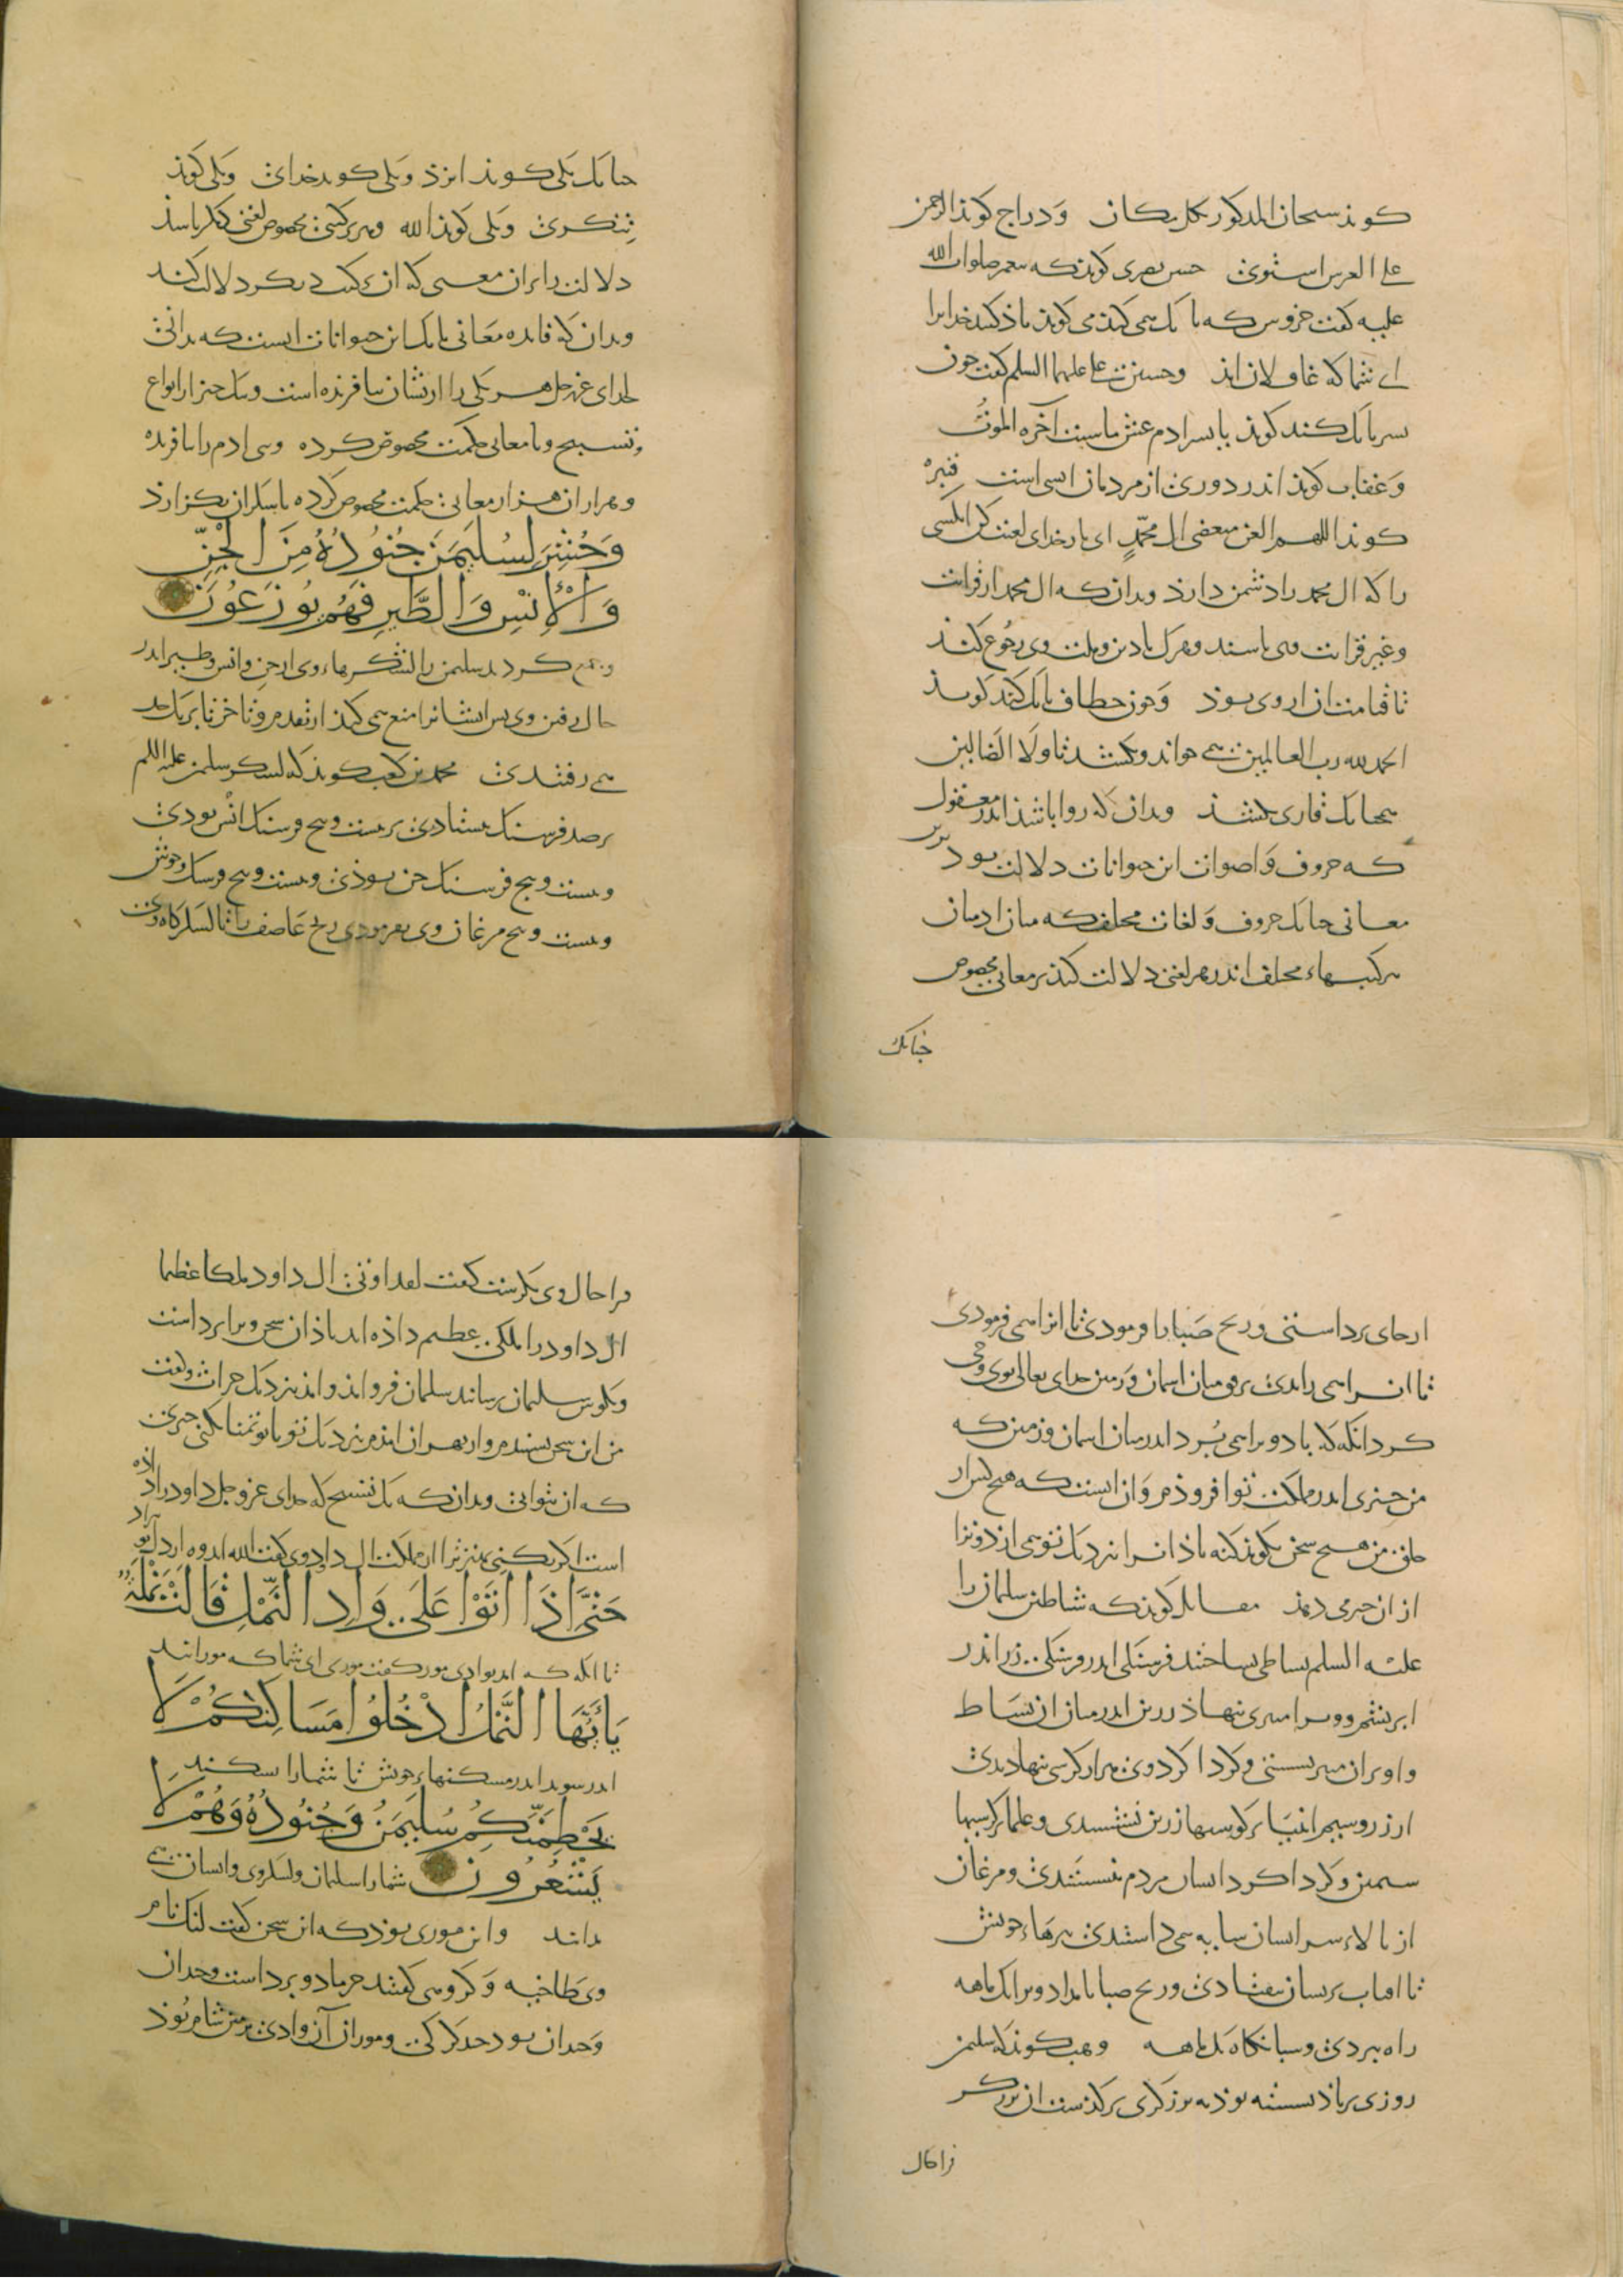 کوید سبحان المذکور بکل مکان ودراج کوید الرحمن
علی العرش استوی حسن بصری کوید که پیغمبر صلوات الله
علیه کفت خروس که بانک همی کند می کوید یاذ کنید خدایرا
ای شما که غافلان اید وحسین بن علی علیهما السلم کفت چون
نسر بانک کند کوید یا بسر ادم عش ما شیت آخره الموت
وعقاب کوید اندر دوری از مردمان انسی است قنبره
کوید اللهم العن مبغضی ال محمد ای بار خدای لعنت کن انکسی
را که ال محمد را دشمن دارد وبدان که ال محمد از قرابت
وغیر قرابت وی باشند وهرک با دین وملت وی رجوع کند
تا قیامت از ال وی بوذ وچون خطاف بانک کند کوید
الحمد لله رب العالمین همی خواند وبکشد تا ولا الضالین
همچنانک قاری بکشد وبدان که روا باشد اندر معقول
که حروف واصوات این حیوانات دلالت بود بر
معانی جنانک حروف ولغات مختلف که میان ادمیان
ترکیبهاء مختلف اندر هر لغتی دلالت کند بر معانی مخصوص
جنانک
جنانک یکی کوید ایزد ویکی کوید خدای ویکی کوید
تنکری ویکی کوید الله وهر ترکیبی مخصوص لغتی دیکر باشد
دلالت را بران معنی که ان ترکیب دیکر دلالت کند
وبدان که فایده معانی بانک این حیوانات انست که بدانی
خدای عز وجل هر یکی را از یشان بیافریده است وبیک چیز از انواع
تسبیح ویا معانی حکمت مخصوص کرده وبنی ادم را بیافریده
وهزاران هزار معانی حکمت مخصوص کرده تا شکران بکزارد
وَحُشِرَ لِسُلَيمَنَ جُنُودُهُ مِنَ الْجِنِّ
وَالْإِنسِ وَالطَّيرِ فَهُم يُوزَعُونَ
وجمع کردند سلیمن را لشکرهاء وی از جن وانس وطیر اندر
حال رفتن وی بس ایشانرا منع همی کردند از تقدم وتاخر تا بر یک حد
همی رفتندی محمد بن کعب کوید که لشکر سلیمن علیه السلم
بر صد فرسنک بیستادی بیست وبنج فرسنک انس بودی
وبیست وبنج فرسنک جن بوذی وبیست وبنج فرسنک وحوش
وبیست وبنج مرغان وی بفرمودی ریح عاصف را تا لشکرکاه وی
از جای برداشتی وریح صبا را فرمودی تا انرا همی فرمودی
تا انرا همی راندی برفو میان اسمان وزمین خدای تعالی بوی وحی
کرد انکه که باد ویرا همی بُرد اندر میان اسمان وزمین که
من چیزی اندر مملکت تو افزودم وان انست که هیچ کس از
خلق من هیچ سخن نکوید که نه باذ انرا نزدیک تو همی ارد وترا
از ان خبر می دهد مقاتل کوید که شیاطین سلیمانرا
علیه السلم بساطی بساختند فرسنکی اندر فرسنکی زر اندر
ابریشم وویرا منبری نهاذ زرین اندر میان ان بساط
واو بران منبر نشستی وکردا کرد وی هزار کرسی نهادندی
از زر وسیم انبیا بر کرسیها زرین نشستندی وعلما بر کرسیها
سیمین وکردا کرد ایشان مردم نشستندی ومرغان
از بالاء سر ایشان سایه همی داشتندی بپرهاء خویش
تا افتاب بریشان نیفتادی وریح صبا بامداد ویرا یک ماهه
راه ببردی وشبانکاه یک ماهه ووهب کوید که سلیمن
روزی بر باذ نشسته بوذ به برزکری برکذشت ان برزکر
فرا حال
فرا حال وی نکرست کفت لقد اوتی ال داود ملکا عظیما
ال داود را ملکی عظیم داده اند باذ ان سخن ویرا برداشت
وبکوش سلیمان رسانید سلیمان فرو امد وامد نزدیک حراث وکفت
من این سخن بشنیدم واز بهر ان امدم نزدیک تو تا تو تمنا نکنی چیزی
که ان نتوانی وبدان که یک تسبیح که خدای عز وجل داود را داده
است اکر بکنی بهتر ترا از مملکت ال داود وی کفت الله اندوه از دل تو براد
حَتَّى إِذَا أَتَوْا عَلَى وَادِ النَّمْلِ قَالَتْ نَمْلَةٌ
تا انکه که امدند بوادی مور کفت موری ای شما که مورانید
يَأَيُّهَا النَّمْلُ ادْخُلُوا مَسَاكِنَكُمْ لَا
اندر شوید اندر مسکنهاء خویش تا شما را نشکند
يَحْطِمَنَّكُم سُلَيمَنُ وَجُنُودُهُ وَهُمْ لَا
يَشْعُرُونَ شما را سلیمان ولشکر وی وایشان نمی
دانند واین موری بوذ که این سخن کفت لنک نام
وی طاخیه وکروهی کفتند حرما دو پر داشت وچندان
وچندان بود چند کرکی وموران آن وادی بزمین شام بُوذ